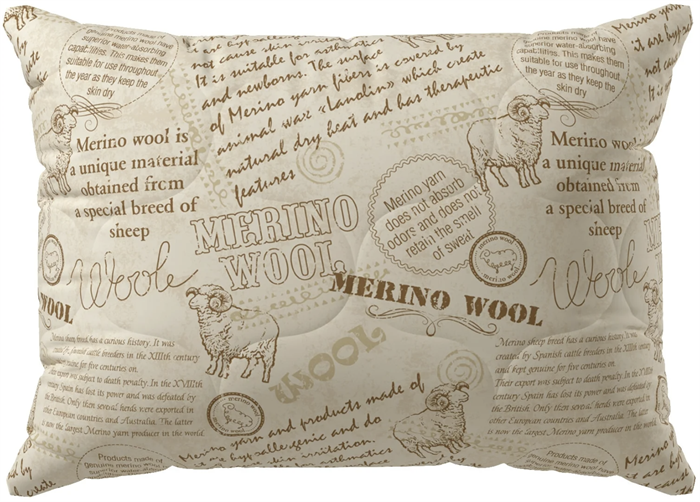 Products made of
genuine merino wool
superior water-absorbing
capabilities. This makes them
suitable for use throughout
the year as they keep the
skin dry
it are hypoallergenic and do
not cause skin irritation.
It is suitable for asthmatics
and newborns. The surface
of Merino yarn fibers is covered by
animal wax «Lanolin» which create
natural dry heat and has therapeutic
features
superior water-absorbing
capabilities. This makes them
suitable for use throughout
the year as they keep the
skin dry
it are hyp
not cause
It is
and n
Merino wool is
a unique material
obtained from
a special breed of
sheep
Merino yarn
does not absorb
odors and does not
retain the smell
of sweat.
Merino wool is
a unique material
obtained from
a special breed of
sheep
MERINO
WOOL
merino wool
Woole
MERINO WOOL
Woole
WOOL
WOOL
Merino sheep breed has a curious history. It was
created by Spanish cattle breeders in the XIIIth century
for five centuries on.
Their export was subject to death penalty. In the XVIIIth
century Spain has lost its power and was defeated by
the British. Only then several herds were exported in
other European countries and Australia. The latter
is now the largest Merino yarn producer in the world.
Merino sheep breed has a curious history. It was
created by Spanish cattle breeders in the XIIIth century
and kept genuine for five centuries on.
Their export was subject to death penalty. In the XVIIIth
century Spain has lost its power and was defeated by
the British. Only then several herds were exported in
other European countries and Australia. The latter
is now the largest Merino yarn producer in the world.
Merino yarn and products made of
it are hypoallergenic and do
not cause skin irritation.
It is suitable for asthmatics
Products made of
genuine merino wool
superior water-absorbing
Products made of
genuine merino wool